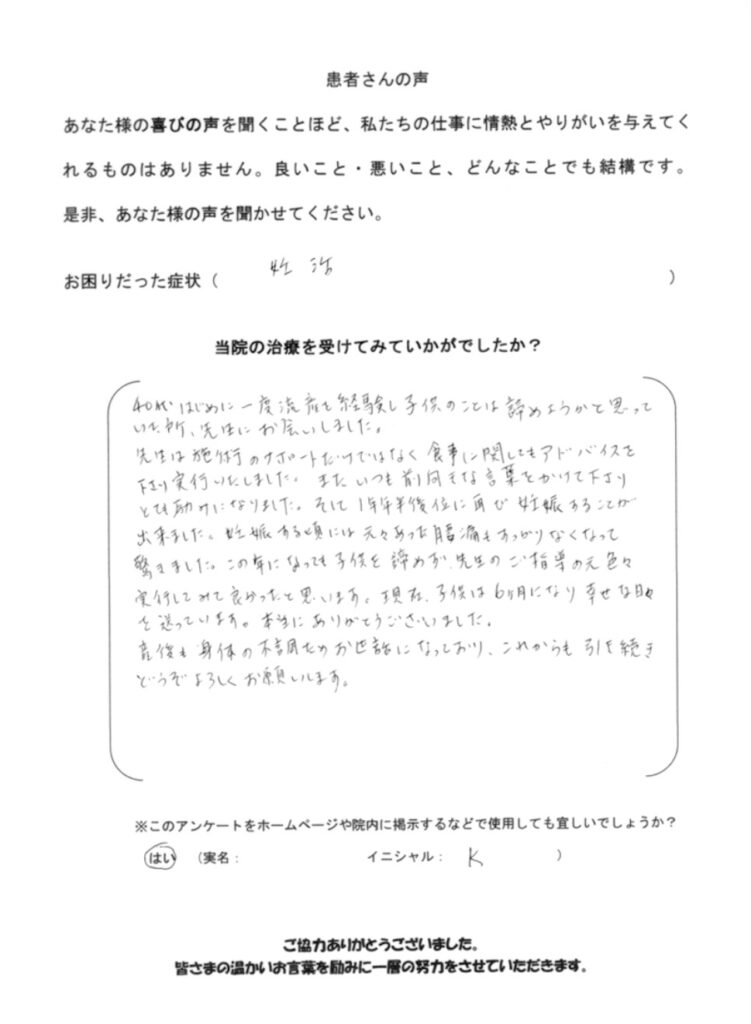 患者さんの声
あなた様の喜びの声を聞くことほど、私たちの仕事に情熱とやりがいを与えてく
れるものはありません。良いこと・悪いこと、どんなことでも結構です。
是非、あなた様の声を聞かせてください。
お困りだった症状（ 妊活 ）
当院の治療を受けてみていかがでしたか？
40代はじめに一度流産を経験し子供のことは諦めようかと思って
いた所、先生にお会いしました。
先生は施術のサポートだけではなく食事に関してもアドバイスを
下さり実行いたしました。またいつも前向きな言葉をかけて下さり
とても励みになりました。そして1年半後位に再び妊娠することが
出来ました。妊娠する頃には元々あった腰痛もすっかりなくなって
驚きました。この年になっても子供を諦めず、先生のご指導の元色々
実行してみて良かったと思います。現在、子供は6ヶ月になり幸せな日々
を送っています。本当にありがとうございました。
産後も身体の不調のためお世話になっており、これからも引き続き
どうぞよろしくお願いします。
※このアンケートをホームページや院内に掲示するなどで使用しても宜しいでしょうか？
はい （実名： イニシャル： K ）
ご協力ありがとうございました。
皆さまの温かいお言葉を励みに一層の努力をさせていただきます。